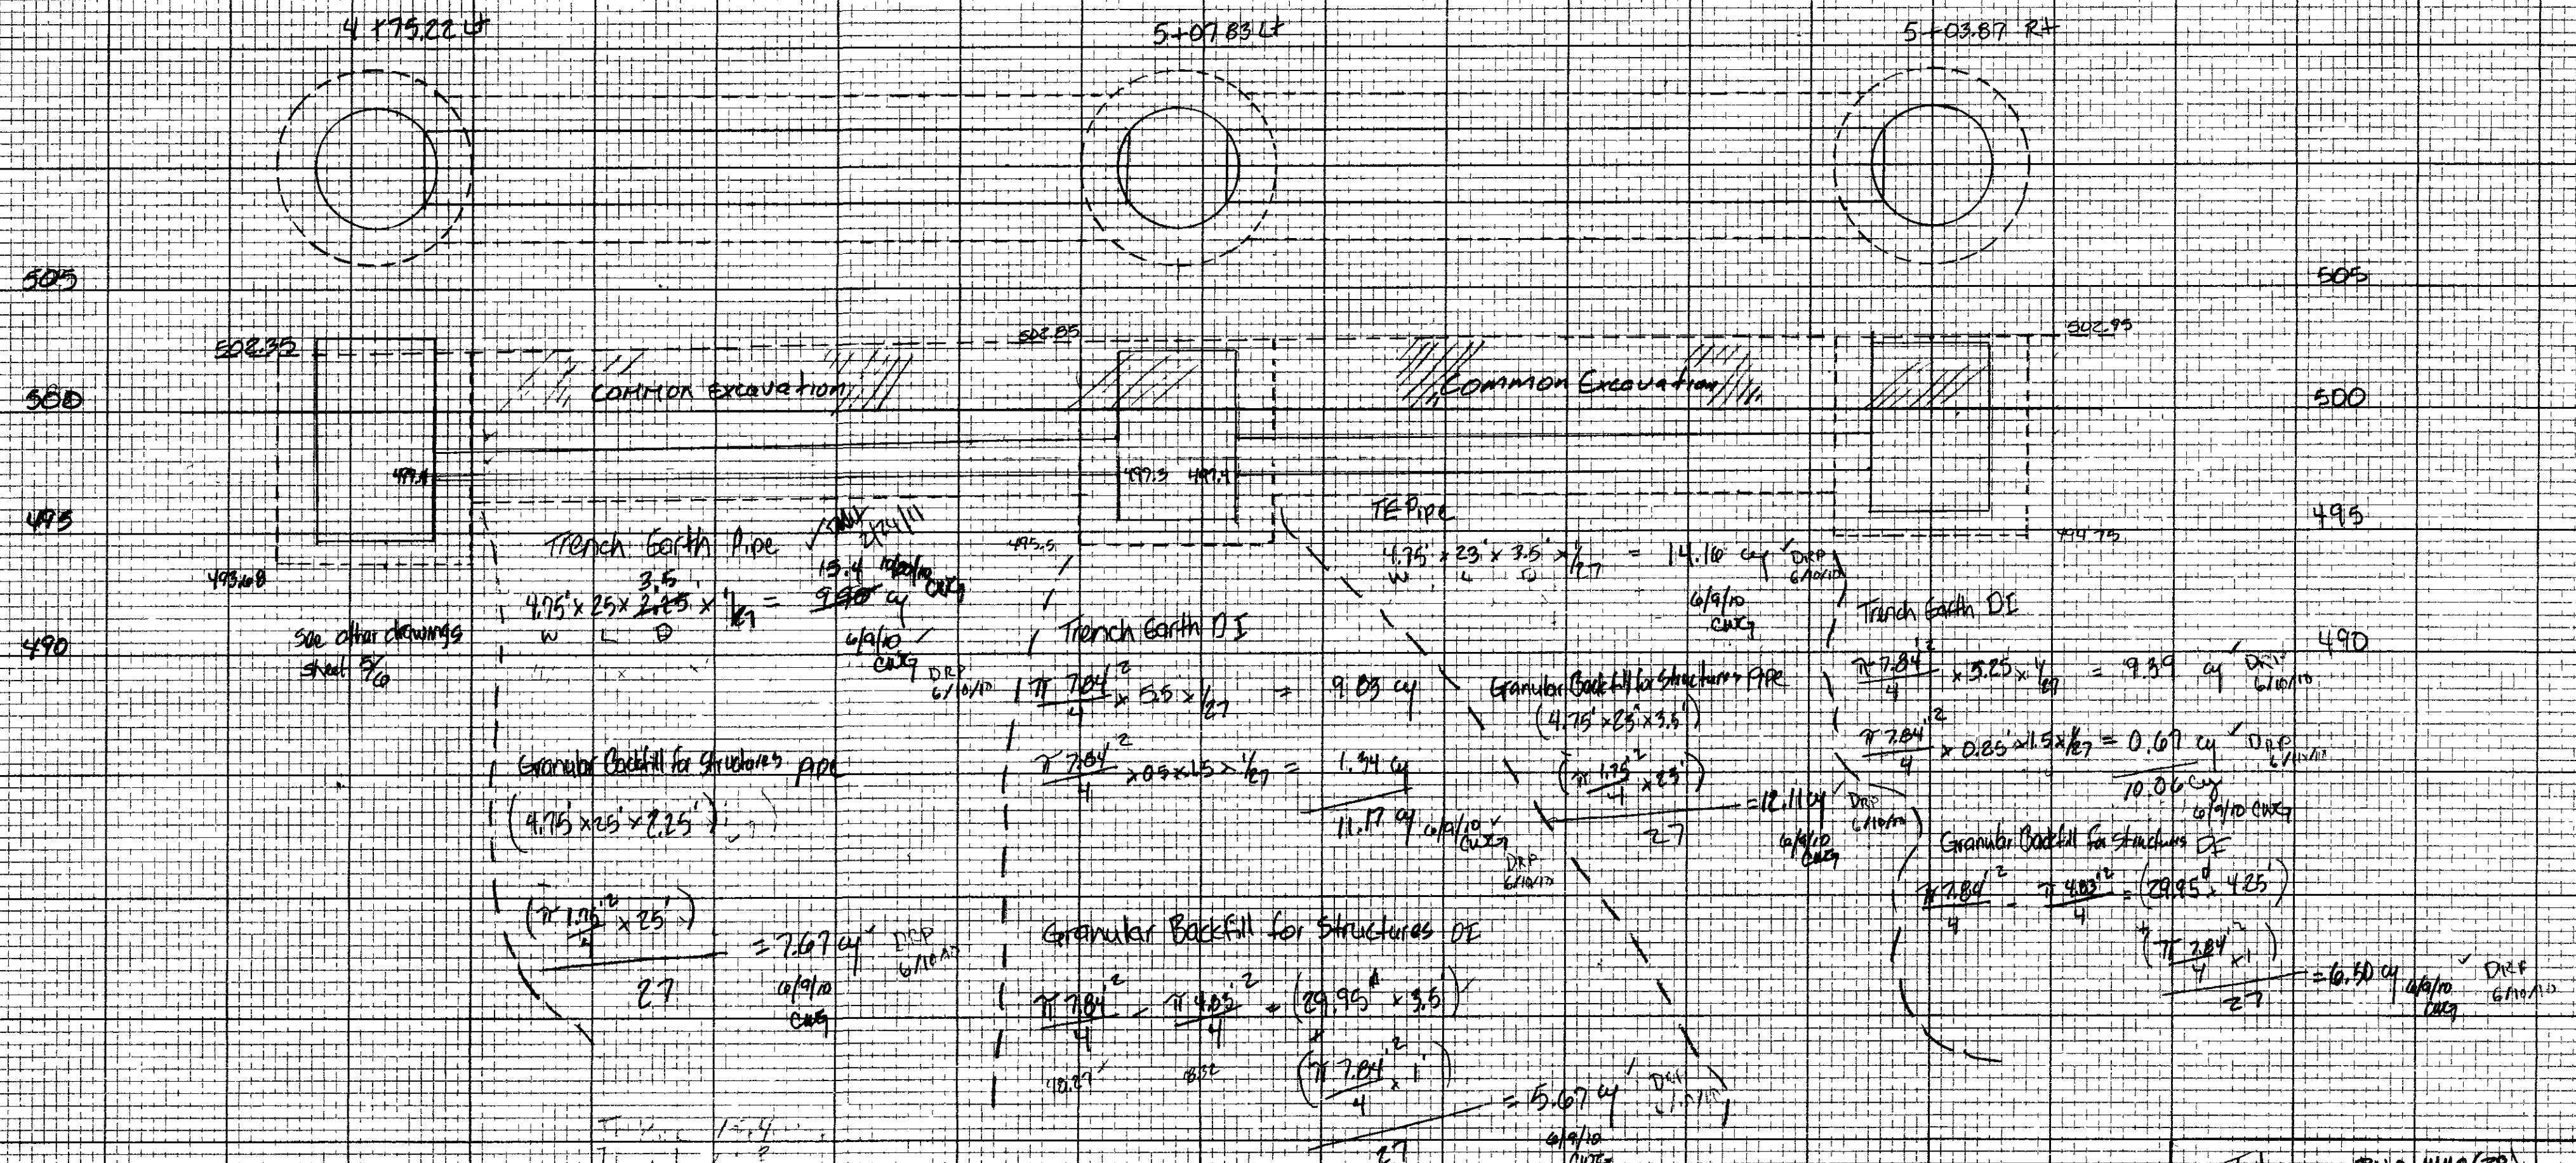 4+75.22 Lt
5+07.83 Lt
5+03.87 Rt
505
505
502.35
502.85
502.95
500
Common Excavation
Common Excavation
500
497.3 497.4
495
495
493.68
495.5
494.75
490
490
see other drawings
sheet 5/6
Trench Earth Pipe
3.5 15.4 10/20/10 CWG
4.75' x 25 x 2.25' x 1/27 = 9.90 cy
W L D
6/9/10
CWG
DRP
6/10/10
Granular Backfill for Structures pipe
(4.75' x 25' x 2.25')
-
(π 1.75'²/4 x 25')
27
= 7.67 cy
DRP
6/10/10
6/9/10
CWG
Trench Earth DI
π 7.84'²/4 x 5.5 x 1/27 = 9.83 cy
π 7.84'²/4 x 0.5 x 1.5 x 1/27 = 1.34 cy
11.17 cy 6/9/10
CWG
DRP
6/10/10
Granular Backfill for Structures DI
π 7.84'²/4 - π 4.83'²/4 = (29.95 x 3.5')
48.27 18.32
+
(π 7.84'²/4 x 1')
27
= 5.67 cy
DRP
6/9/10
TE Pipe
4.75' x 23' x 3.5' x 1/27 = 14.16 cy
W L D
DRP
6/10/10
6/9/10
CWG
Granular Backfill for Structures Pipe
(4.75' x 23' x 3.5')
-
(π 1.75'²/4 x 23')
27
= 12.11 cy
DRP
6/10/10
6/9/10
CWG
Trench Earth DI
π 7.84'²/4 x 5.25 x 1/27 = 9.39 cy
DRP
6/10/10
π 7.84'²/4 x 0.25' x 1.5 x 1/27 = 0.67 cy
DRP
10.06 cy
6/9/10 CWG
Granular Backfill for Structures DI
π 7.84'²/4 - π 4.83'²/4 = (29.95 x 4.25')
+
(π 7.84'²/4 x 1')
27
= 6.50 cy
6/9/10
CWG
DRP
6/10/10